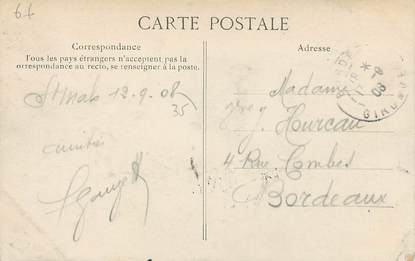 66
CARTE POSTALE
Correspondance
Tous les pays étrangers n'acceptent pas la
correspondance au recto, se renseigner à la poste.
St Malo 12-9-08
35
amitiés
Adresse
Madame
J. Hourcau
4 Rue Combes
Bordeaux
08
GIRONDE